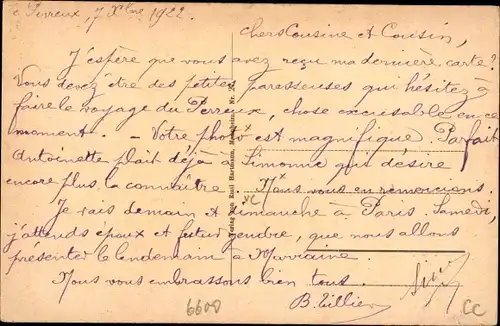 Perreux, 7 Xbre 1922.
chers Cousine et Cousin,
J'espère que vous avez reçu ma dernière carte?
Vous devez être des petites paresseuses qui hésitez à
faire le voyage du Perreux, chose excusable en ce
moment. - Votre photo est magnifique. Parfait
Antoinette plait déjà à Simonne qui désire
encore plus la connaître. Nous vous en remercions.
Je vais demain et dimanche à Paris. Samedi,
j'attends époux et futur gendre, que nous allons
présenter le lendemain à Marraine.
Nous vous embrassons bien tous.
B. Tillier
6600
CC
Verlag von Emil Hartmann, Mannheim. Nr.